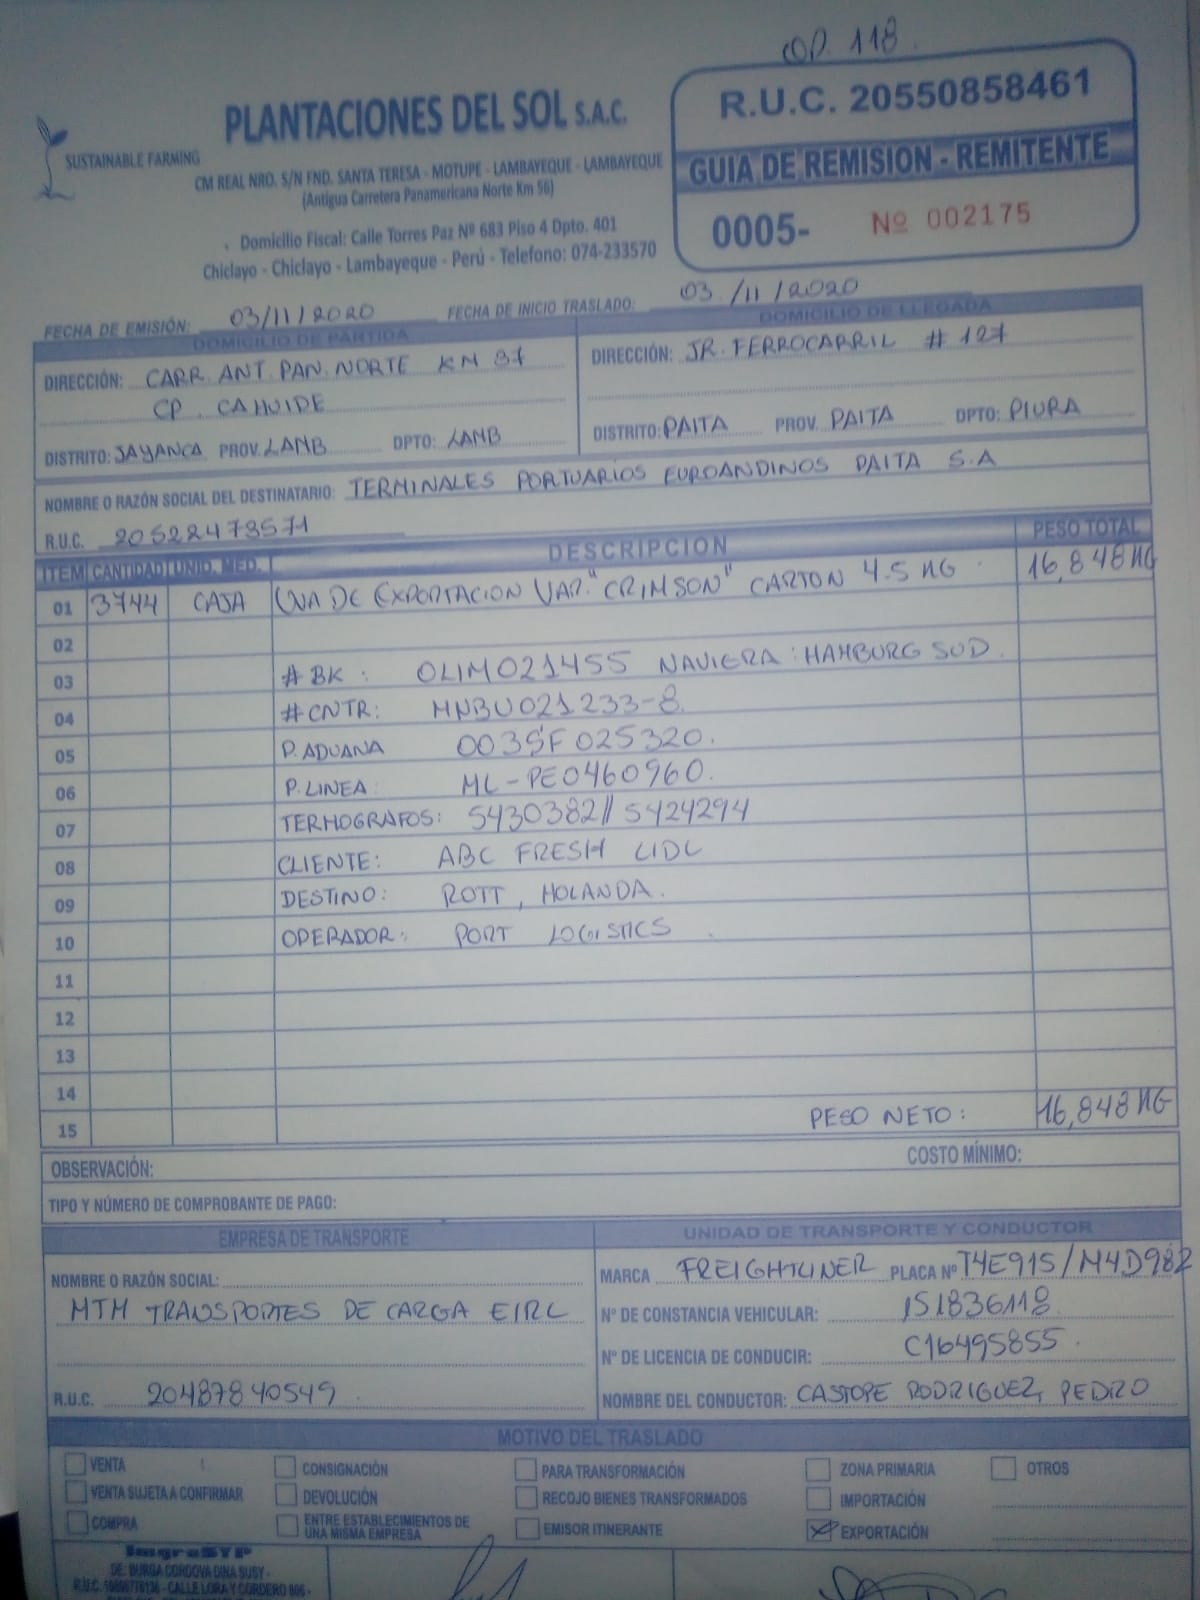 OP. 118.
PLANTACIONES DEL SOL S.A.C.
SUSTAINABLE FARMING
CM REAL NRO. S/N FND. SANTA TERESA - MOTUPE - LAMBAYEQUE - LAMBAYEQUE
(Antigua Carretera Panamericana Norte Km 56)
Domicilio Fiscal: Calle Torres Paz Nº 683 Piso 4 Dpto. 401
Chiclayo - Chiclayo - Lambayeque - Perú - Telefono: 074-233570
R.U.C. 20550858461
GUIA DE REMISION - REMITENTE
0005- Nº 002175
FECHA DE EMISIÓN: 03/11/2020 FECHA DE INICIO TRASLADO: 03/11/2020
DOMICILIO DE PARTIDA
DIRECCIÓN: CARR. ANT. PAN. NORTE KM 37
CP. CAHUIDE
DISTRITO: JAYANCA PROV. LAMB DPTO: LAMB
DOMICILIO DE LLEGADA
DIRECCIÓN: JR. FERROCARRIL # 127
DISTRITO: PAITA PROV. PAITA DPTO: PIURA
NOMBRE O RAZÓN SOCIAL DEL DESTINATARIO: TERMINALES PORTUARIOS EUROANDINOS PAITA S.A
R.U.C. 20522473571
ITEM CANTIDAD UNID. MED. DESCRIPCION PESO TOTAL
01 3744 CAJA UVA DE EXPORTACION VAR. "CRIMSON" CARTON 4.5 KG 16,848 KG
02
03 # BK: OLIM021455 NAVIERA: HAMBURG SUD.
04 # CNTR: MNBU021233-8.
05 P. ADUANA 0035F025320.
06 P. LINEA: ML-PE0460960.
07 TERMOGRAFOS: 5430382//5424294
08 CLIENTE: ABC FRESH LIDL
09 DESTINO: ROTT, HOLANDA.
10 OPERADOR: PORT LOGISTICS.
11
12
13
14
15 PESO NETO: 16,848 KG
OBSERVACIÓN: COSTO MÍNIMO:
TIPO Y NÚMERO DE COMPROBANTE DE PAGO:
EMPRESA DE TRANSPORTE
NOMBRE O RAZÓN SOCIAL:
MTM TRANSPORTES DE CARGA EIRL
R.U.C. 20487840549
UNIDAD DE TRANSPORTE Y CONDUCTOR
MARCA FREIGHTLINER PLACA Nº T4E915/M4D982
Nº DE CONSTANCIA VEHICULAR: 151836118
Nº DE LICENCIA DE CONDUCIR: C16495855.
NOMBRE DEL CONDUCTOR: CASTOPE RODRIGUEZ, PEDRO
MOTIVO DEL TRASLADO
VENTA CONSIGNACIÓN PARA TRANSFORMACIÓN ZONA PRIMARIA OTROS
VENTA SUJETA A CONFIRMAR DEVOLUCIÓN RECOJO BIENES TRANSFORMADOS IMPORTACIÓN
COMPRA ENTRE ESTABLECIMIENTOS DE UNA MISMA EMPRESA EMISOR ITINERANTE EXPORTACIÓN
ImgraSYP
DE: BURGA CORDOVA DINA SUSY -
CALLE LORA Y CORDERO